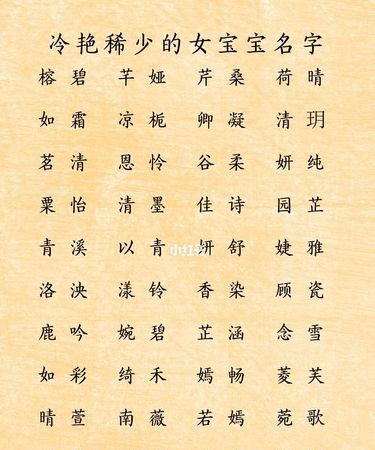 冷艳稀少的女宝宝名字
榕碧 芊娅 芹桑 荷晴
如霜 凉栀 卿凝 清玥
茗清 恩怜 谷柔 妍纯
粟怡 清墨 佳诗 园芷
青溪 以青 妍舒 婕雅
小红书
洛泱 漾铃 香染 顾瓷
鹿吟 婉碧 芷涵 念雪
如彩 绮禾 嫣畅 菱芙
晴萱 南薇 若嫣 菀歌